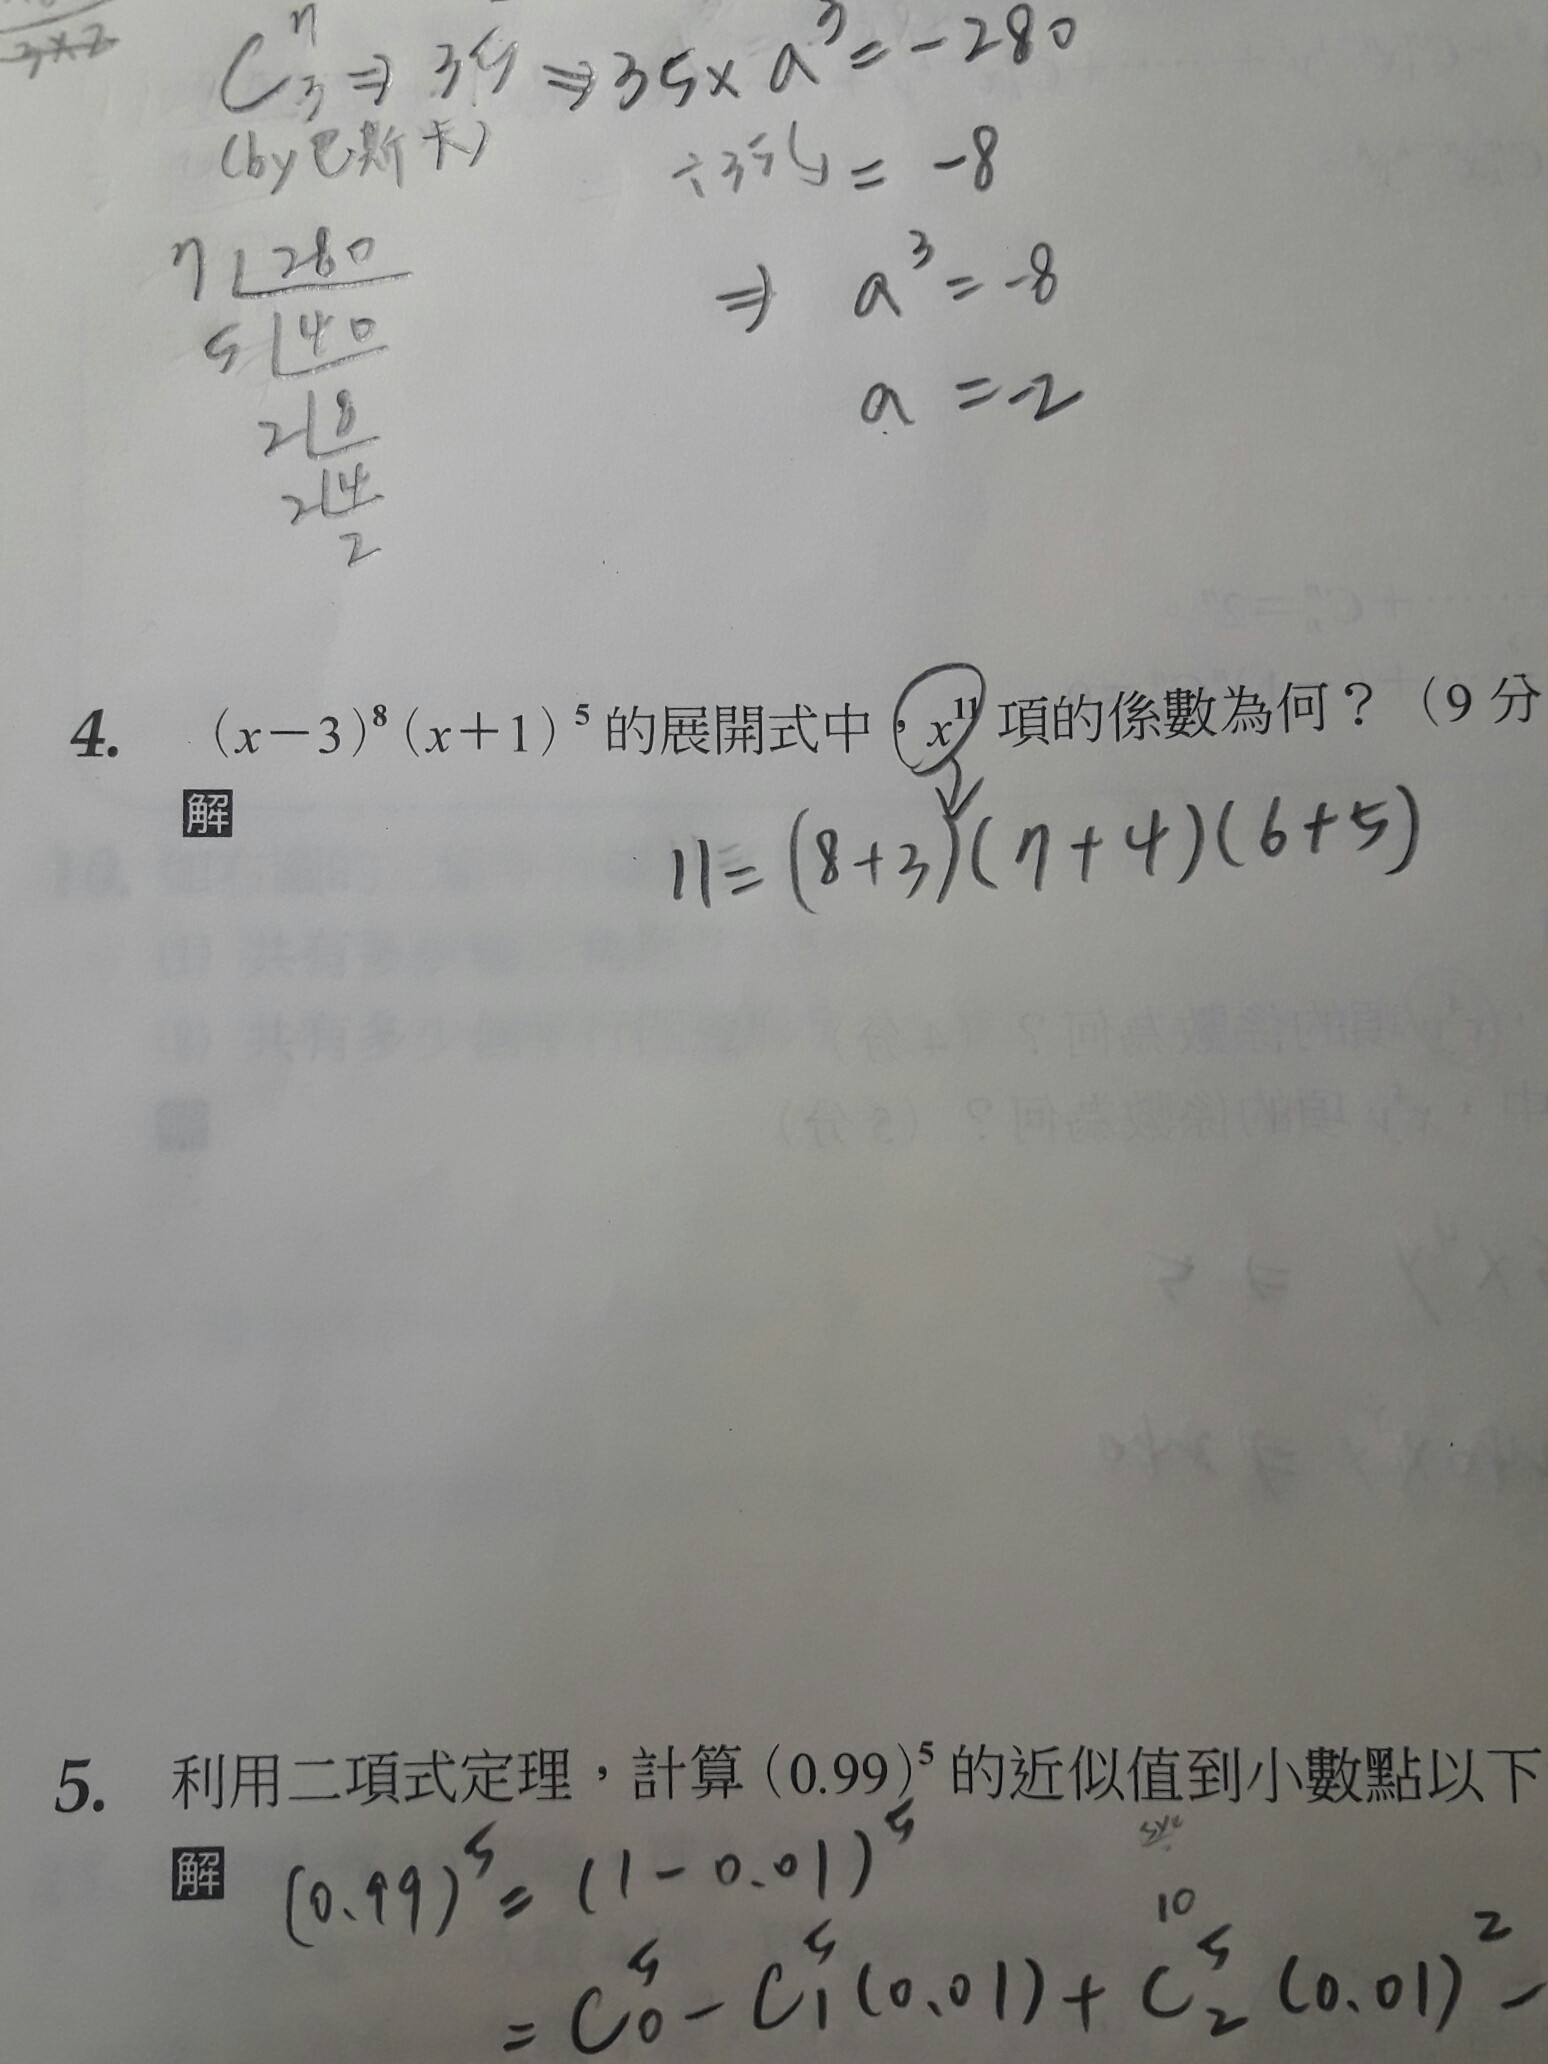 C⁷₃ ⇒ 35 ⇒ 35 × a³ = -280
(by 巴斯卡)
÷35 = -8
7 280
5 40
2 8
2 4
2
⇒ a³ = -8
a = -2
4. (x－3)⁸(x＋1)⁵的展開式中，x¹¹項的係數為何？（9分
解
11 = (8+3)(7+4)(6+5)
5. 利用二項式定理，計算(0.99)⁵的近似值到小數點以下
解 (0.99)⁵ = (1-0.01)⁵
10
= C⁵₀ - C⁵₁(0.01) + C⁵₂(0.01)² -